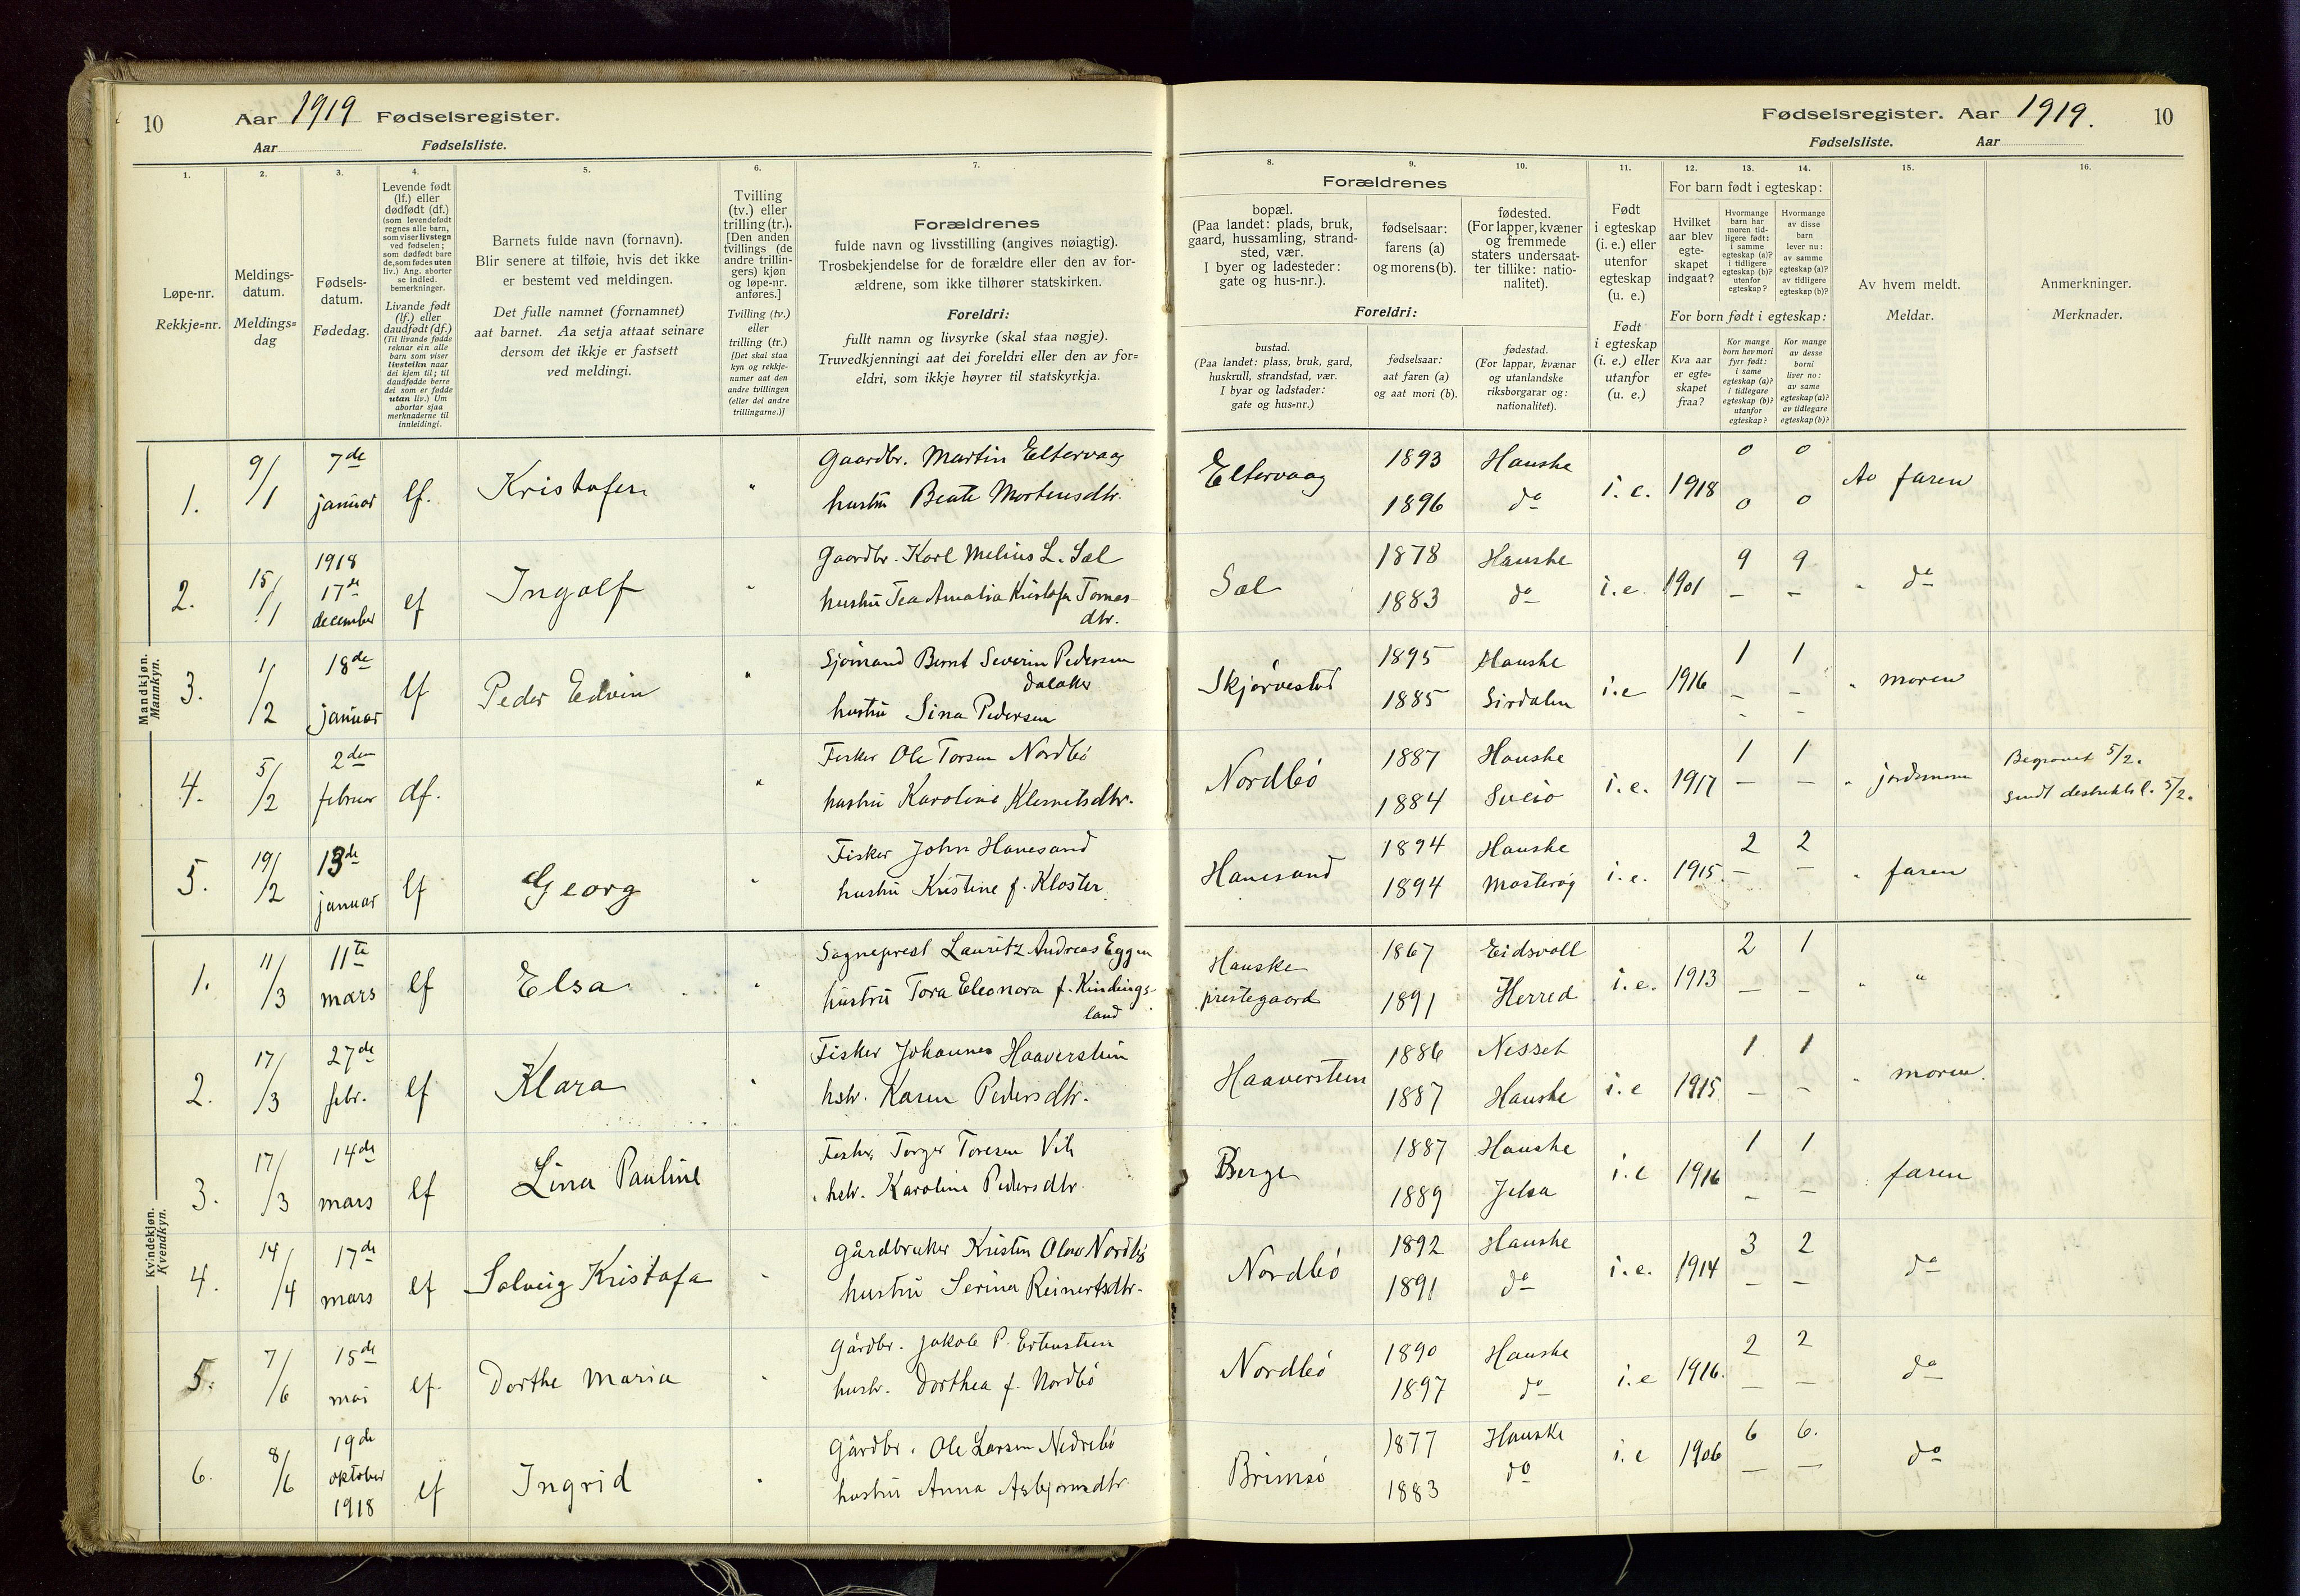 10
Aar 1919 Fødselsregister.
Aar Fødselsliste.
1.
2.
3.
4.
5.
6.
7.
Løpe-nr.
Rekkje=nr.
Meldings-
datum.
Meldings=
dag
Fødsels-
datum.
Fødedag.
Levende født
(lf.) eller
dødfødt (df.)
(som levendefødt
regnes alle barn,
som viser livstegn
ved fødselen;
som dødfødt bare
de, som fødes uten
liv.) Ang. aborter
se indled.
bemerkninger.
Livande født
(lf.) eller
daudfødt (df.)
(Til livande fødde
reknar ein alle
barn som viser
livsteikn naar
dei kjem til; til
daudfødde berre
dei som er fødde
utan liv.) Um
abortar sjaa
merknaderne til
innleidingi.
Barnets fulde navn (fornavn).
Blir senere at tilføie, hvis det ikke
er bestemt ved meldingen.
Det fulle namnet (fornamnet)
aat barnet. Aa setja attaat seinare
dersom det ikkje er fastsett
ved meldingi.
Tvilling
(tv.) eller
trilling (tr.).
[Den anden
tvillings (de
andre trillin-
gers) kjøn
og løpe-nr.
anføres.]
Tvilling (tv.)
eller
trilling (tr.)
[Det skal staa
kyn og rekkje-
numer aat den
andre tvillingen
(eller dei andre
trillingarne.)]
Forældrenes
fulde navn og livsstilling (angives nøiagtig).
Trosbekjendelse for de forældre eller den av for-
ældrene, som ikke tilhører statskirken.
Foreldri:
fullt namn og livsyrke (skal staa nøgje).
Truvedkjenningi aat dei foreldri eller den av for=
eldri, som ikkje høyrer til statskyrkja.
Mandkjøn.
Mannkyn.
1.
9/1
7de
januar
lf.
Kristofer
"
Gaardbr. Martin Eltervaag
hustru Beate Mortensdtr.
2.
15/1
1918
17de
december
lf
Ingolf
"
Gaardbr. Karl Melius L. Sæl
hustru Tea Amalia Kristofa Tomas-
dtr.
3.
1/2
18de
januar
lf
Peder Edvin
"
Sjømand Bernt Severin Pedersen
Dalaker
hustru Sina Pedersen
4.
5/2
2den
februar
df.
"
Fisker Ole Torsen Nordbø
hustru Karoline Klemetsdtr.
5.
19/2
13de
januar
lf
Georg
"
Fisker John Hanesand
hustru Kristine f. Kloster
Kvindekjøn.
Kvendkyn.
1.
11/3
11te
mars
lf
Elsa
"
Sogneprest Lauritz Andreas Eggen
hustru Tora Eleonora f. Kindings-
land
2.
17/3
27de
febr.
lf
Klara
"
Fisker Johannes Haaverstein
hstr. Karen Pedersdtr.
3.
17/3
14de
mars
lf
Lina Pauline
Fisker Torger Toresen Vik
hstr. Karoline Pedersdtr.
4.
14/4
17de
mars
lf
Solveig Kristofa
"
Gårdbruker Kristen Olav Nordbø
hustru Serina Reinertsdtr.
5.
7/6
15de
mai
lf.
Dorthe Maria
"
Gårdbr. Jakob P. Ertenstein
hustr. Dorthea f. Nordbø
6.
8/6
19de
oktober
1918
lf
Ingrid
"
Gårdbr. Ole Larsen Nedrebø
hustru Anna Asbjørnsdtr
Fødselsregister. Aar 1919.
10
Fødselsliste. Aar
8.
9.
10.
11.
12.
13.
14.
15.
16.
Forældrenes
bopæl.
(Paa landet: plads, bruk,
gaard, hussamling, strand-
sted, vær.
I byer og ladesteder:
gate og hus-nr.).
fødselsaar:
farens (a)
og morens (b).
fødested.
(For lapper, kvæner
og fremmede
staters undersaat-
ter tillike: natio-
nalitet).
Foreldri:
bustad.
(Paa landet: plass, bruk, gard,
huskrull, strandstad, vær.
I byar og ladstader:
gate og hus=nr.)
fødselsaar:
aat faren (a)
og aat mori (b).
fødestad.
(For lappar, kvænar
og utanlandske
riksborgarar og:
nationalitet).
Født
i egteskap
(i. e.) eller
utenfor
egteskap
(u. e.)
Født
i egteskap
(i. e.) eller
utanfor
(u. e.)
For barn født i egteskap:
Hvilket
aar blev
egte-
skapet
indgaat?
Hvormange
barn har
moren tid-
ligere født:
i samme
egteskap (a)?
i tidligere
egteskap (b)?
utenfor
egteskap?
Hvormange
av disse
barn
lever nu:
av samme
egteskap (a)?
av tidligere
egteskap (b)?
For born født i egteskap:
Kva aar
er egte=
skapet
fraa?
Kor mange
born hev mori
fyrr født:
i same
egteskap (a)?
i tidlegare
egteskap (b)?
utanfor
egteskap?
Kor mange
av desse
borni
liver no:
av same
egteskap (a)?
av tidlegare
egteskap (b)?
Av hvem meldt.
Meldar.
Anmerkninger.
Merknader.
Eltervaag
1893
1896
Hauske
do
i. e.
1918
0 0
0 0
Av faren
Sæl
1878
1883
Hauske
do
i. e.
1901
9 9
– –
" do
Skjørvestad
1895
1885
Hauske
Sirdalen
i. e
1916
1 1
– –
- -
" moren
Nordbø
1887
1884
Hauske
Sveio
i. e.
1917
1 1
– –
" jordmoren
Begravet 5/2.
Sendt 5/2.
Hanesand
1894
1894
Hauske
Mosterøy
i. e.
1915.
2 2
– –
" faren
Hauske
prestegaard
1867
1891
Eidsvoll
Herred
i. e.
1913
2 1
– –
" "
Haaverstein
1886
1887
Nesset
Hauske
i. e
1915
1 1
– –
" moren.
Berge
1887
1889
Hauske
Jelsa
i. e
1916
1 1
– –
" faren
Nordbø
1892
1891
Hauske
do
i. e.
1914
3 2
– –
do
Nordbø
1890
1897
Hauske
do
i. e
1916.
2 2
– –
do
Brimsø
1877
1883
Hauske
do
i. e
1906
6 6.
– –
do